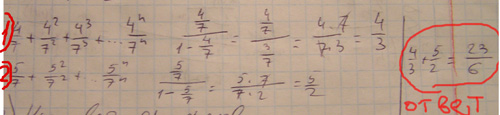 1) 4/7 + 4²/7² + 4³/7³ + ... 4ⁿ/7ⁿ (4/7)/(1 - 4/7) = (4/7)/(3/7) = (4·7)/(7·3) = 4/3
2) 5/7 + 5²/7² + ... 5ⁿ/7ⁿ (5/7)/(1 - 5/7) = (5·7)/(7·2) = 5/2
4/3 + 5/2 = 23/6
ОТВЕТ